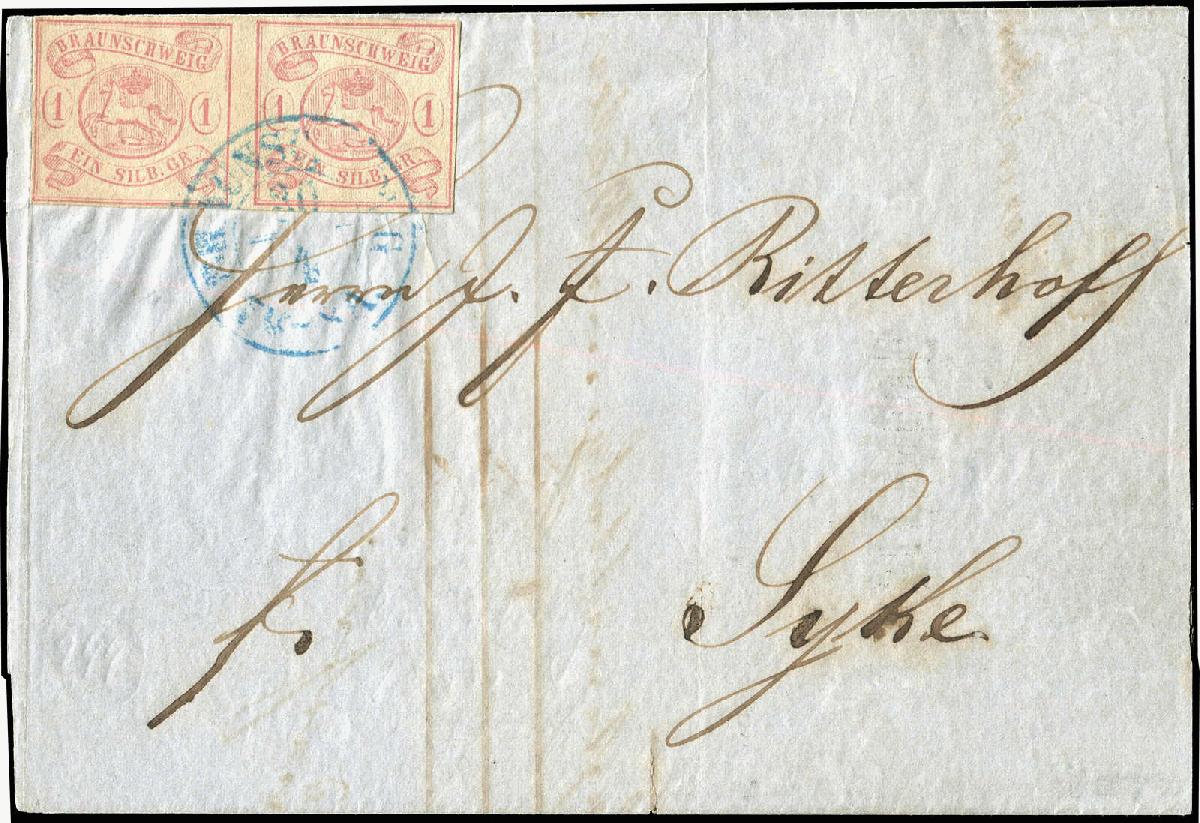 BRAUNSCHWEIG
1 1
EIN SILB. GR.
BRAUNSCHWEIG
1 1
EIN SILB. GR.
Herrn J. F. Ritterhoff
f.
Syke